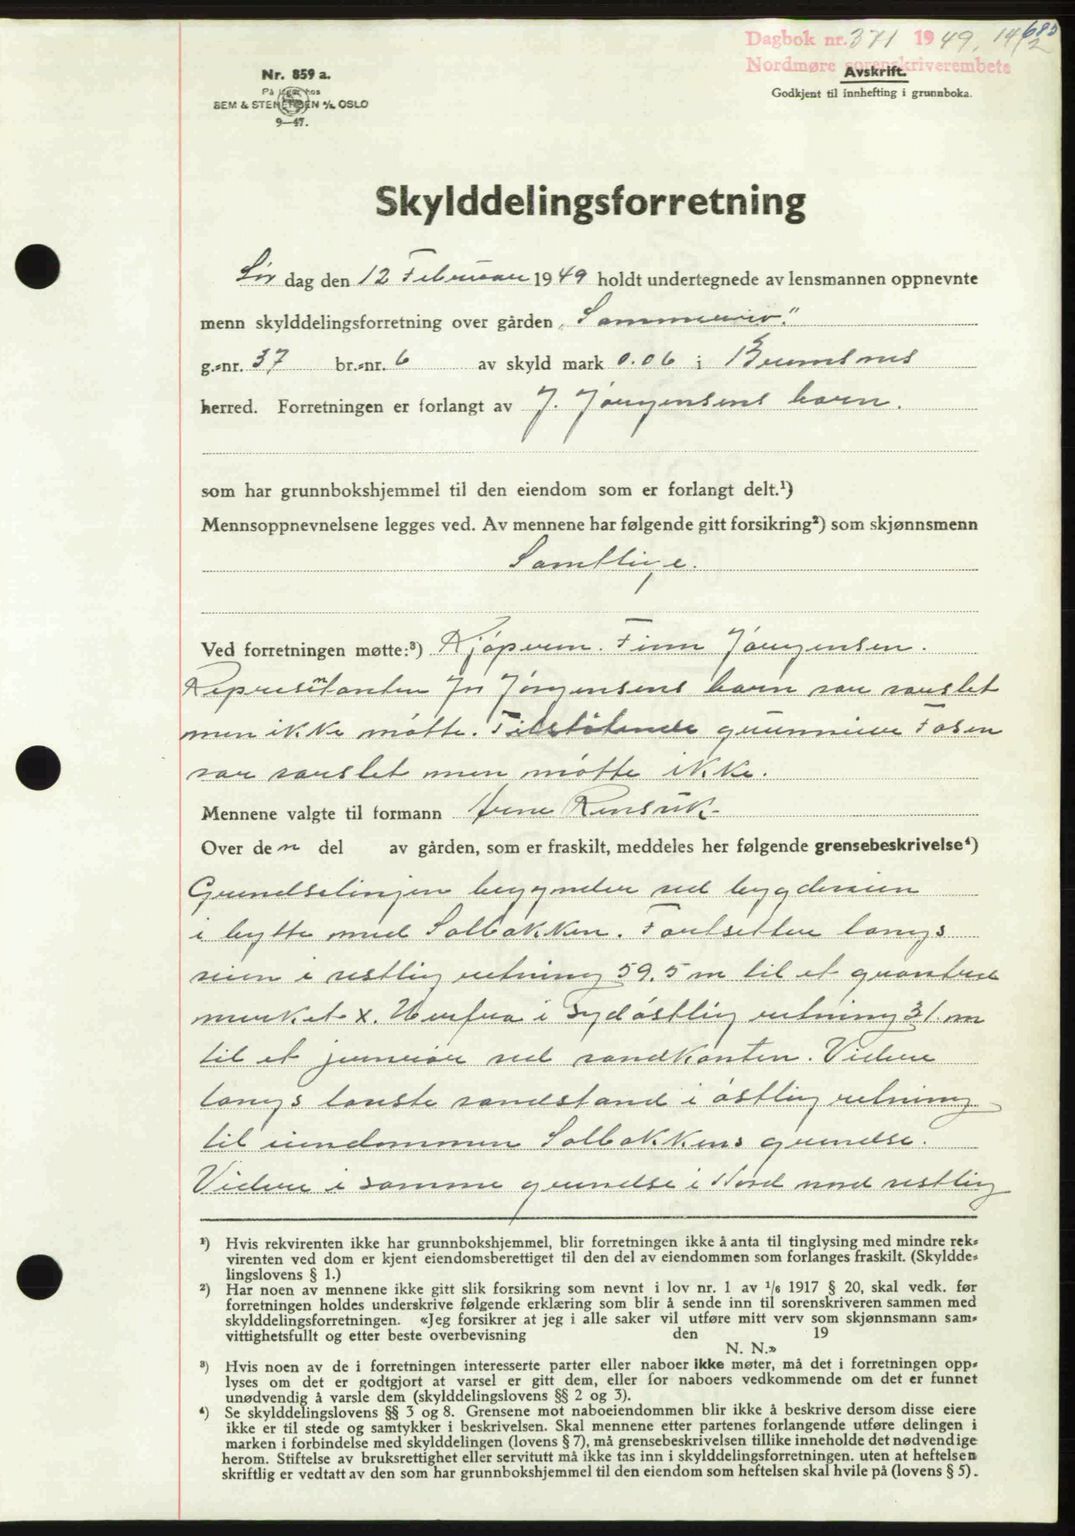 Dagbok nr. 371 1949. 14/2 685
Nordmøre sorenskriverembete
Nr. 859 a.
På lager hos
SEM & STENERSEN A/S, OSLO
9—47.
Avskrift.
Godkjent til innhefting i grunnboka.
Skylddelingsforretning
Lør dag den 12 Februar 1949 holdt undertegnede av lensmannen oppnevnte
menn skylddelingsforretning over gården „Sommerro."
g.=nr. 37 br.=nr. 6 av skyld mark 0.06 i Bremsnes
herred. Forretningen er forlangt av J. Jørgensens barn.
som har grunnbokshjemmel til den eiendom som er forlangt delt.¹)
Mennsoppnevnelsene legges ved. Av mennene har følgende gitt forsikring²) som skjønnsmenn
Samtlige.
Ved forretningen møtte:³) Kjøperen. Finn Jørgensen.
Representanten for Jørgensens barn var varslet
men ikke møtte. Tilstøtende grunneier Fosen
var varslet men møtte ikke.
Mennene valgte til formann Arne Rensvik-
Over den del av gården, som er fraskilt, meddeles her følgende grensebeskrivelse⁴)
Grendselinjen begynder ved bygdeveien
i bytte med Solbakken. Fortsetter langs
veien i vestlig retning 59.5 m til et grantre
merket x. Herfra i sydøstlig retning 31. m
til et jernrør ved sandkanten. Videre
langs sandstand i østlig retning
til eiendommen Solbakkens grendse.
Videre i samme grendse i Nord nord vestlig
¹) Hvis rekvirenten ikke har grunnbokshjemmel, blir forretningen ikke å anta til tinglysing med mindre rek=
virenten ved dom er kjent eiendomsberettiget til den del av eiendommen som forlanges fraskilt. (Skyldde=
lingslovens § 1.)
²) Har noen av mennene ikke gitt slik forsikring som nevnt i lov nr. 1 av 1/6 1917 § 20, skal vedk. før
forretningen holdes underskrive følgende erklæring som blir å sende inn til sorenskriveren sammen med
skylddelingsforretningen. «Jeg forsikrer at jeg i alle saker vil utføre mitt verv som skjønnsmann sam=
vittighetsfullt og etter beste overbevisning den 19
N. N.»
³) Hvis noen av de i forretningen interesserte parter eller naboer ikke møter, må det i forretningen opp=
lyses om det er godtgjort at varsel er gitt dem, eller for naboers vedkommende om det er funnet
unødvendig å varsle dem (skylddelingslovens §§ 2 og 3).
⁴) Se skylddelingslovens §§ 3 og 8. Grensene mot naboeiendommen blir ikke å beskrive dersom disse eiere
ikke er til stede og samtykker i beskrivelsen. Skal mennene etter partenes forlangende utføre delingen i
marken i forbindelse med skylddelingen (lovens § 7), må grensebeskrivelsen tillike inneholde det nødvendige
herom. Stiftelse av bruksrettighet eller servitutt må ikke tas inn i skylddelingsforretningen. uten at heftelsen
skriftlig er vedtatt av den som har grunnbokshjemmel til den eiendom som heftelsen skal hvile på (lovens § 5).